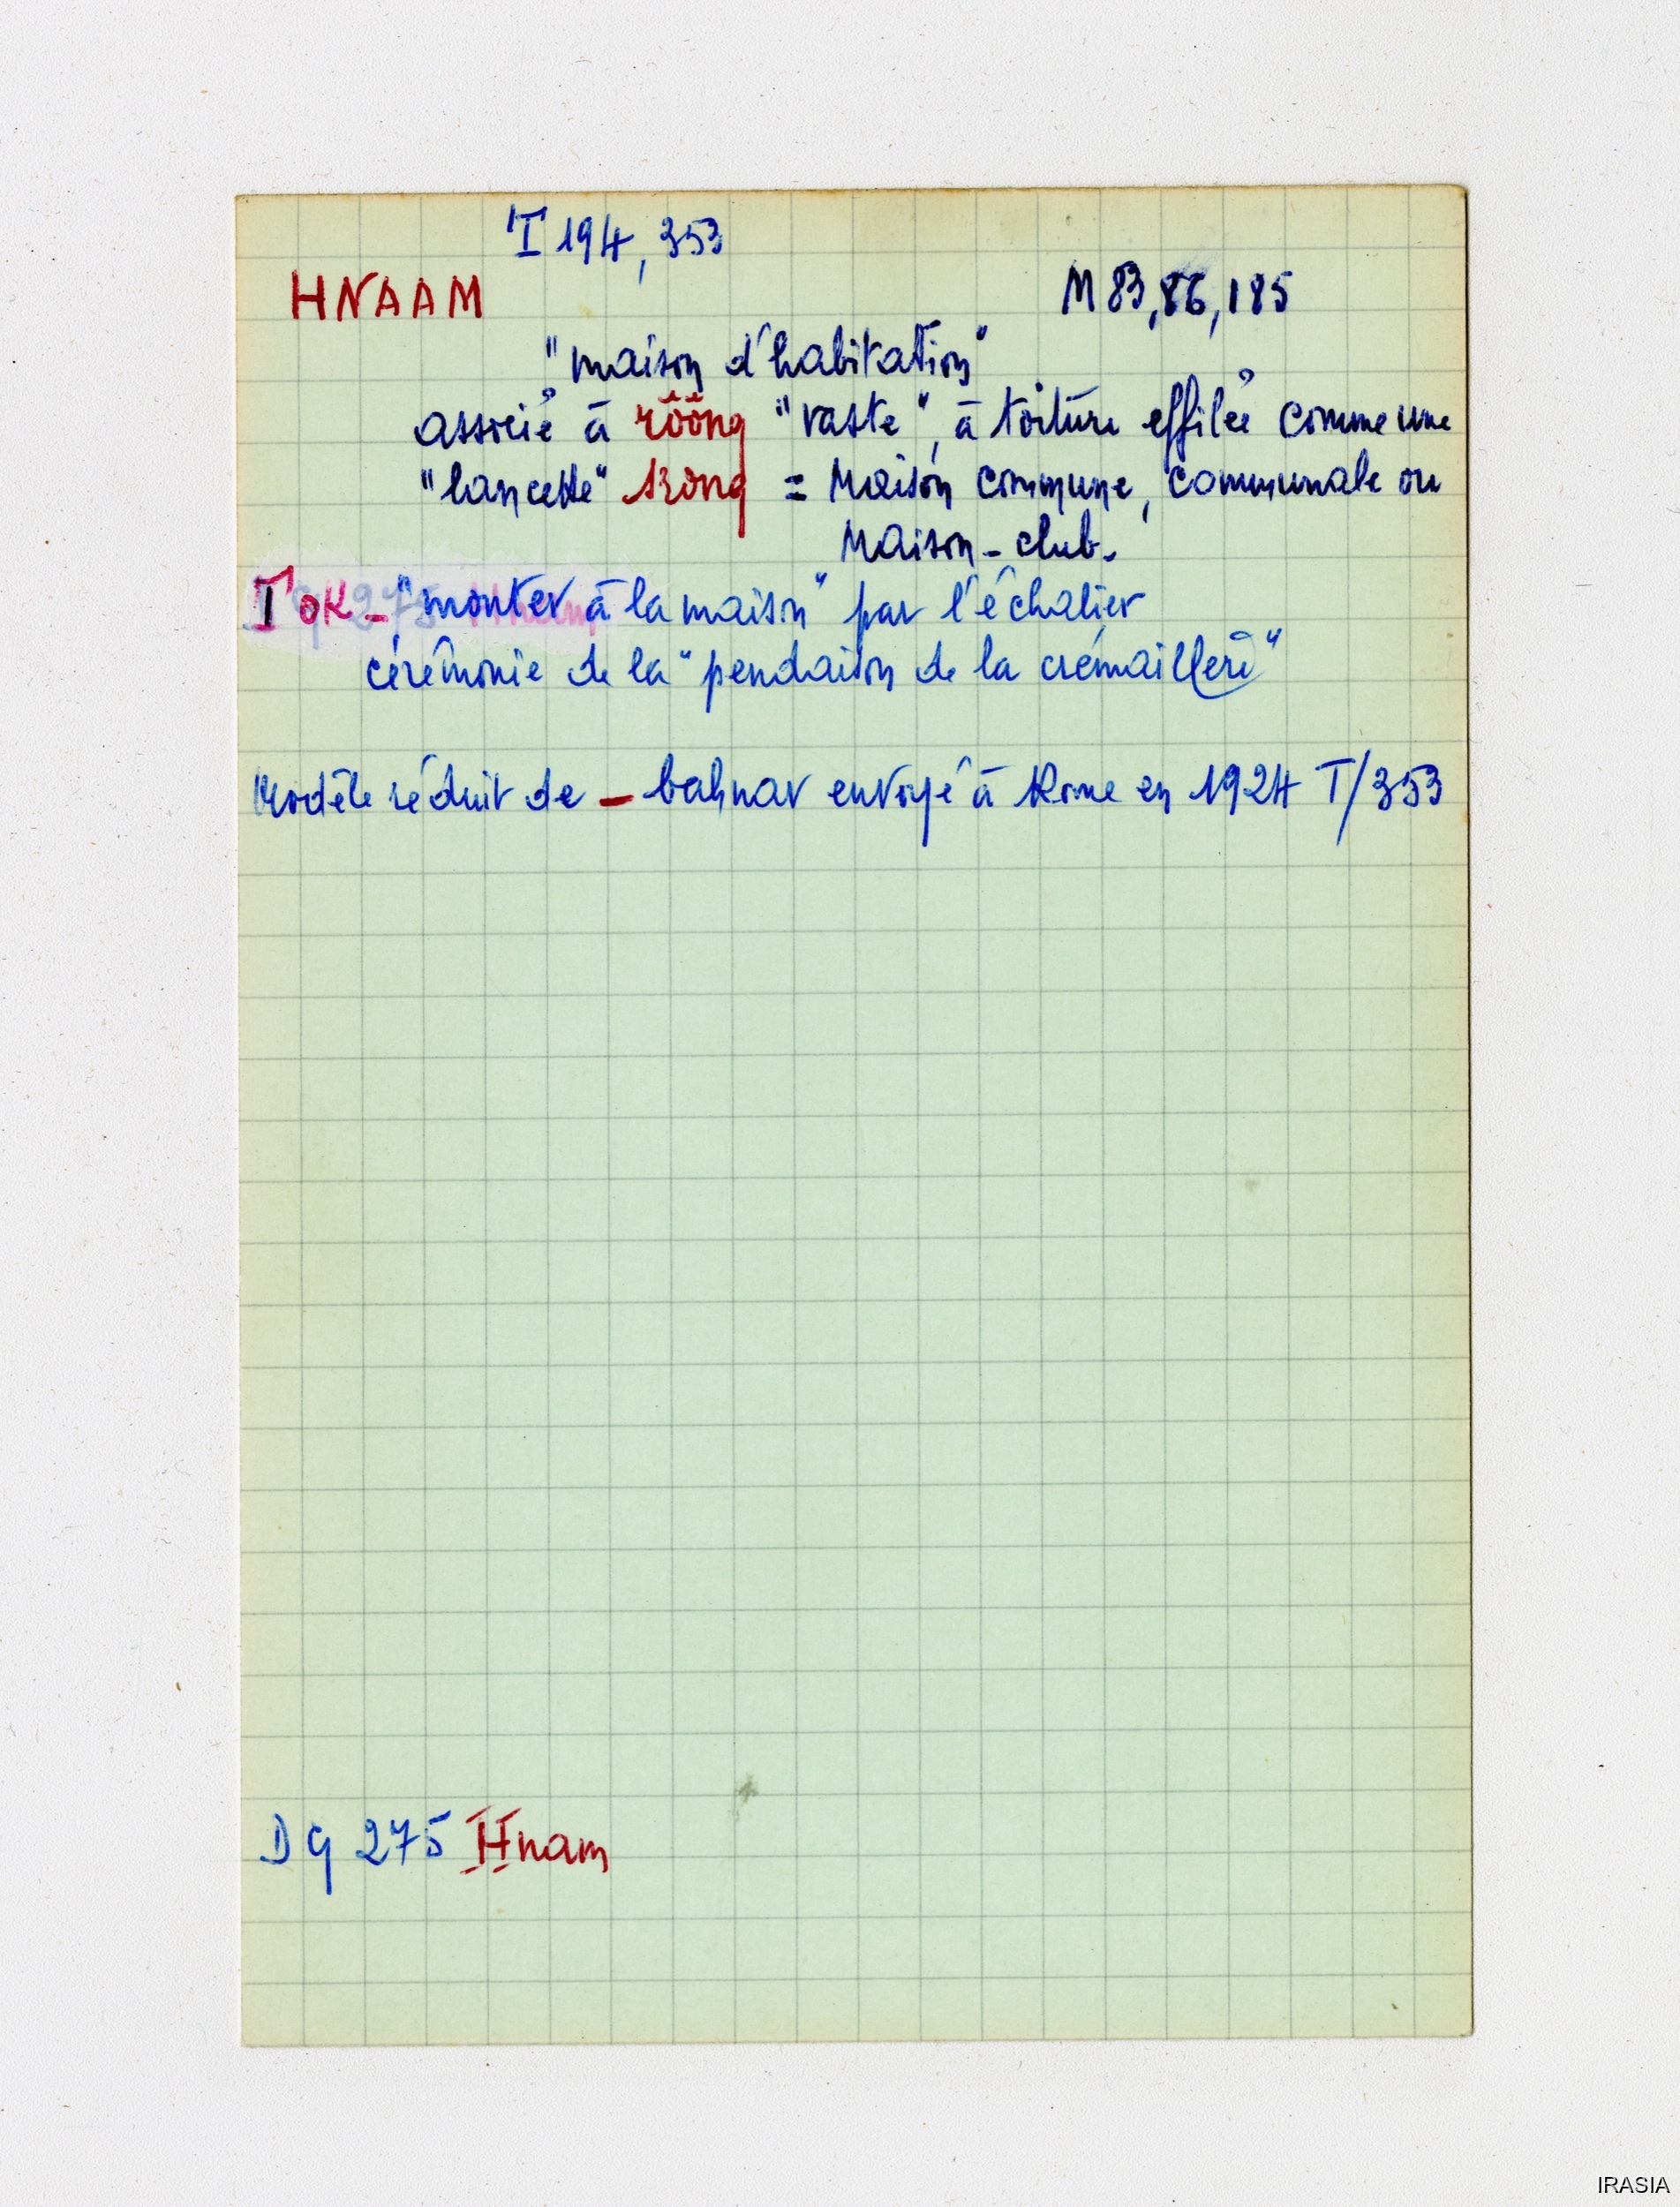 T 194, 353
HNAAM M 83, 86, 185
"maison d'habitation"
associé à rôông "vaste", à toiture effilée comme une
"lancette" krong = Maison commune, communale ou
Maison - club.
Tok - "monter à la maison" par l'échalier
cérémonie de la "pendaison de la crémaillère"
Modèle réduit de - bahnar envoyé à Rome en 1924 T/353
DG 275 Hnam
IRASIA